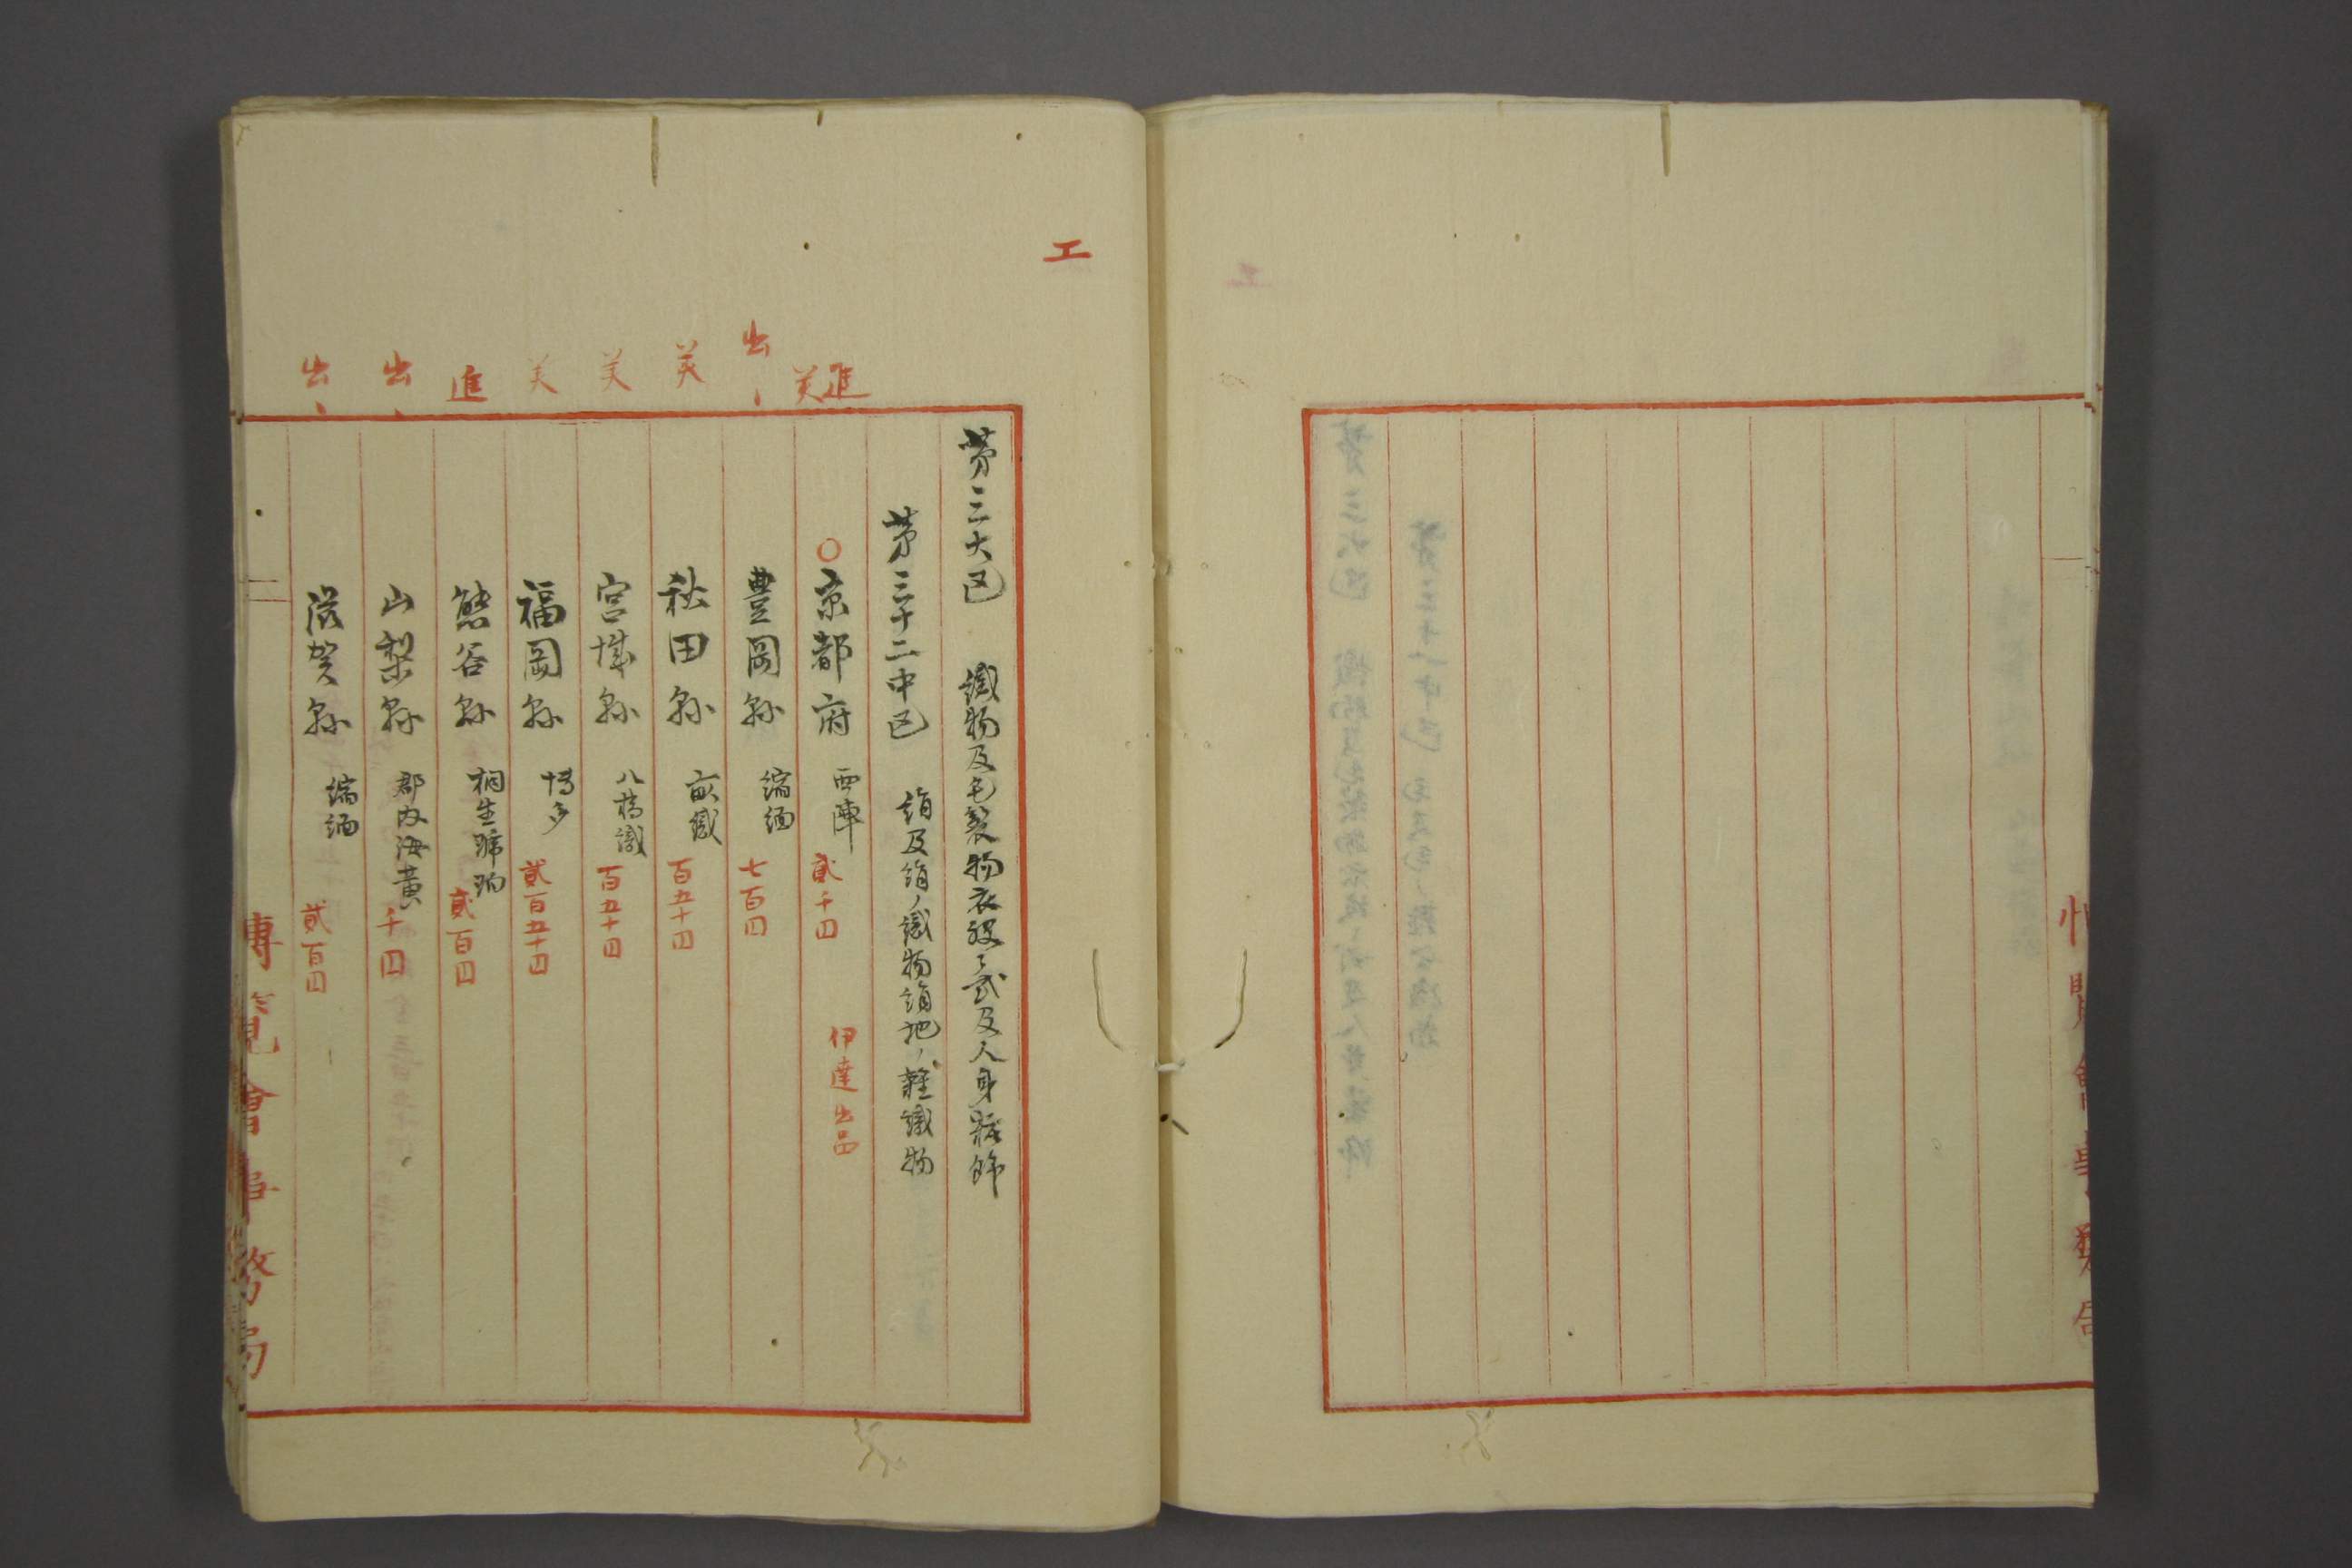 工
第三大区 織物及毛製物衣服ノ武及人身粧飾
第三十二中区 絹及絹ノ織物絹地ノ雑織物
進美 ○京都府 西陣 貳千円 伊達出品
出、 豊岡縣 縮緬 七百円
美 秋田縣 畝織 百五十円
美 宮城縣 八橋織 百五十円
美 福岡縣 博多 貳百五十円
進 熊谷縣 桐生 貳百円
出、 山梨縣 郡内海黄 千円
出、 滋賀縣 縮緬 貳百円
博覧會事務局